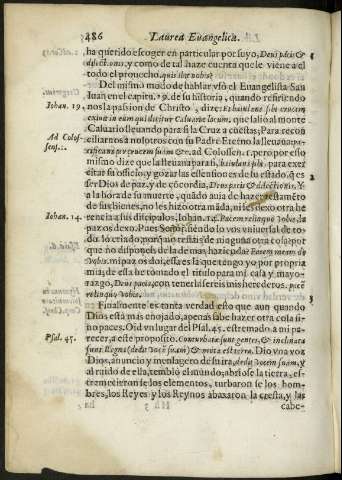 486 Laurea Euangelica.
ha querido escoger en particular por suyo, Deus pacis &
dilectionis, y como de tal haze cuenta que le viene a el
todo el prouecho, quis ibit nobis?
Del mismo modo de hablar vsó el Euangelista San
Iuan en el capitu. 19. de su historia, quando refiriendo
Iohan. 19.
nos la passion de Christo, dize: Et baiulans sibi crucem
exiuit in eum qui dicitur Caluariæ locum, que salio al monte
Caluario lleuando para si la Cruz a cuestas; Para recon
Ad Colos-
sens. 1.
ciliarnos a nosotros con su Padre Eterno la lleuaua
pacificans per crucem suam &c. ad Colossen. 1. pero por esso
mismo dize que la lleuaua para si, baiulans sibi, para exer
citar su oficio, y gozar las essensiones de su estado, q es
ser Dios de paz, y de cõcordia, Deus pacis & dilectionis. Y
a la hora de su muerte, quãdo auia de hazer testamẽto
de sus bienes, no les hizo otra mãda, ni les dexo otra he
Iohan. 14.
rencia a sus dicipulos, Iohan. 14. Pacem relinquo vobis, la
paz os dexo. Pues Señor, siendo lo vos vniuersal de to-
do lo criado, porque no
que no disponeys de la de mas, haziendo: Pacem meam do
vobis. mi paz os doi, essa es la que tengo yo por propria
mia; de essa he tomado el titulo para mi casa y mayo-
razgo, Deus pacis, con tener la sereis mis herederos. pacẽ
relinquo vobis.
Finalmente es tanta verdad esto que aun quando
Dios està mas enojado, apenas sabe hazer otra cosa si-
no pazes. Oid vn lugar del Psal. 45. estremado a mi pa-
Psal. 45.
recer, a este proposito. Conturbatæ sunt gentes, & inclinata
sunt Regna (dedit vocẽ suam) & mota est terra. Dio vna voz
Dios, anuncio y mensagero de su ira, dedit vocem suam, y
al raido de ella, temblò el mundo; abriose la tierra, es-
tremecieronse los elementos, turbaron se los hom-
bres, los Reyes y los Reynos abaxaron la cresta, y las
cabe-